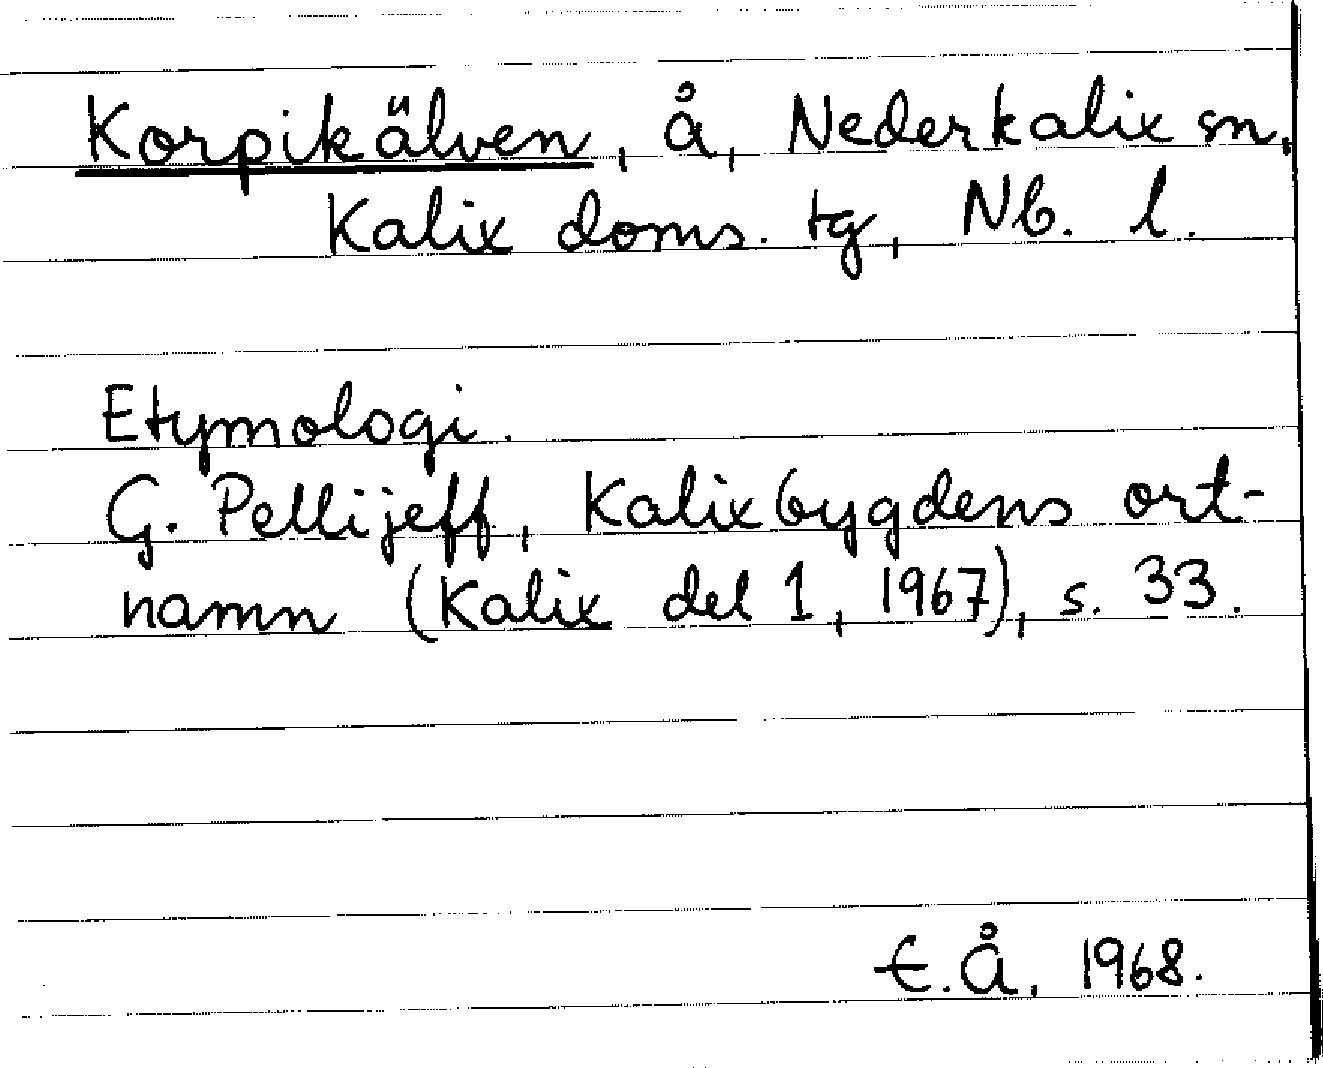 Korpikälven, å, Nederkalix sn,
Kalix doms. tg, Nb. l.
Etymologi.
G. Pellijeff, Kalixbygdens ort-
namn (Kalix del 1, 1967), s. 33.
E.Å. 1968.